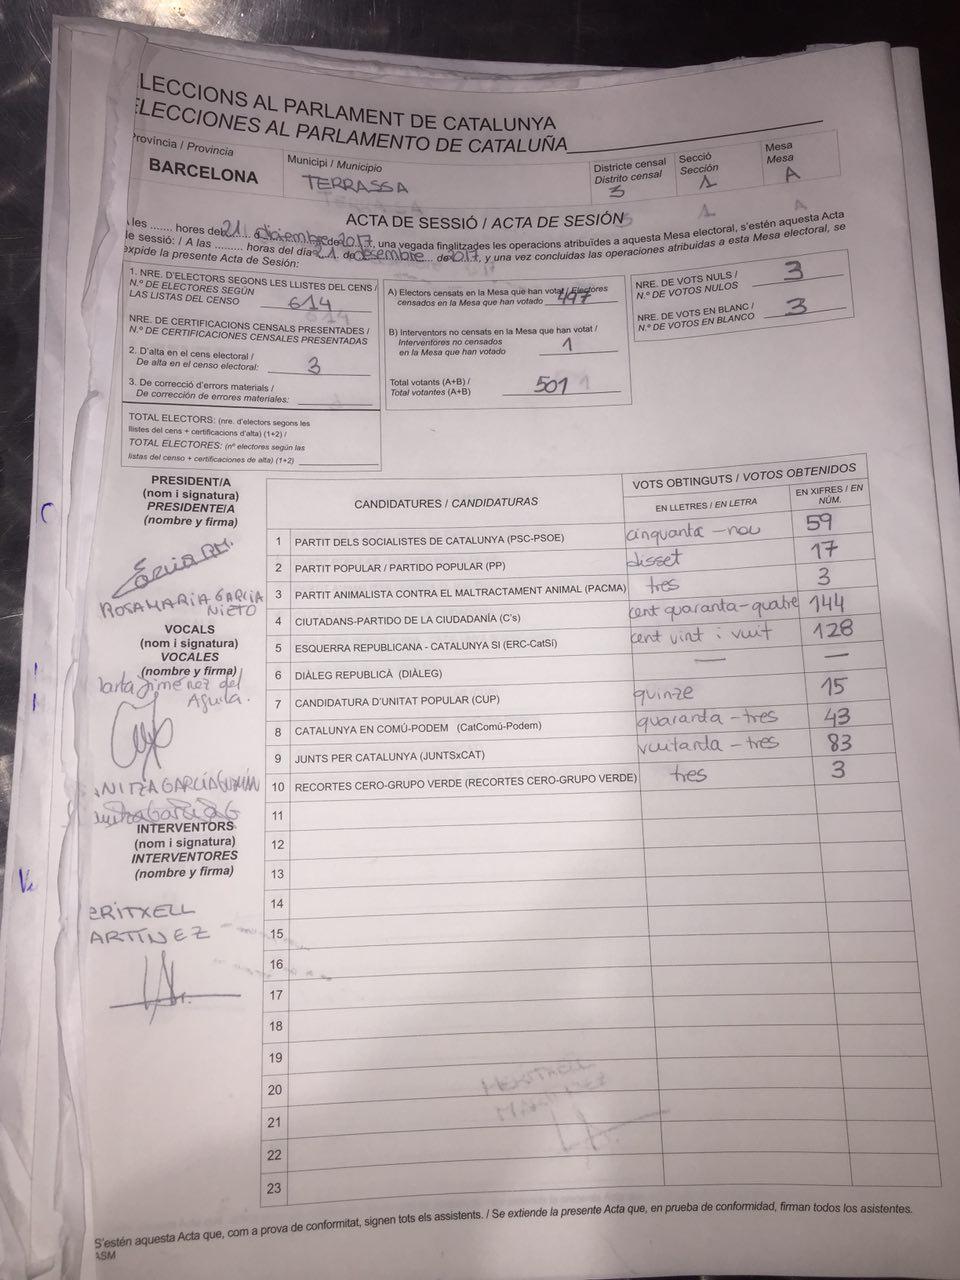 LECCIONS AL PARLAMENT DE CATALUNYA
ELECCIONES AL PARLAMENTO DE CATALUÑA
Província / Provincia
BARCELONA
Municipi / Municipio
TERRASSA
Districte censal
Distrito censal
3
Secció
Sección
1
Mesa
Mesa
A
ACTA DE SESSIÓ / ACTA DE SESIÓN
A les ....... hores del 21 de diciembre de 2017, una vegada finalitzades les operacions atribuïdes a aquesta Mesa electoral, s'estén aquesta Acta
de sessió: / A las ......... horas del día 21 de desembre de 2017, y una vez concluidas las operaciones atribuidas a esta Mesa electoral, se
expide la presente Acta de Sesión:
1. NRE. D'ELECTORS SEGONS LES LLISTES DEL CENS /
N.º DE ELECTORES SEGÚN
LAS LISTAS DEL CENSO 614
NRE. DE CERTIFICACIONS CENSALS PRESENTADES /
N.º DE CERTIFICACIONES CENSALES PRESENTADAS
2. D'alta en el cens electoral /
De alta en el censo electoral: 3
3. De correcció d'errors materials /
De corrección de errores materiales:
TOTAL ELECTORS: (nre. d'electors segons les
llistes del cens + certificacions d'alta) (1+2) /
TOTAL ELECTORES: (nº electores según las
listas del censo + certificaciones de alta) (1+2)
A) Electors censats en la Mesa que han votat / Electores
censados en la Mesa que han votado 497
B) Interventors no censats en la Mesa que han votat /
Interventores no censados
en la Mesa que han votado 1
Total votants (A+B) /
Total votantes (A+B) 501
NRE. DE VOTS NULS /
N.º DE VOTOS NULOS 3
NRE. DE VOTS EN BLANC /
N.º DE VOTOS EN BLANCO 3
PRESIDENT/A
(nom i signatura)
PRESIDENTE/A
(nombre y firma)
ROSA MARIA GARCIA
NIETO
VOCALS
(nom i signatura)
VOCALES
(nombre y firma)
Jiménez del
Aguila.
INTERVENTORS
(nom i signatura)
INTERVENTORES
(nombre y firma)
ERITXELL
ARTÍNEZ
CANDIDATURES / CANDIDATURAS
VOTS OBTINGUTS / VOTOS OBTENIDOS
EN LLETRES / EN LETRA
EN XIFRES / EN
NÚM.
1 PARTIT DELS SOCIALISTES DE CATALUNYA (PSC-PSOE) cinquanta-nou 59
2 PARTIT POPULAR / PARTIDO POPULAR (PP) disset 17
3 PARTIT ANIMALISTA CONTRA EL MALTRACTAMENT ANIMAL (PACMA) tres 3
4 CIUTADANS-PARTIDO DE LA CIUDADANÍA (C's) cent quaranta-quatre 144
5 ESQUERRA REPUBLICANA - CATALUNYA SI (ERC-CatSí) cent vint i vuit 128
6 DIÀLEG REPUBLICÀ (DIÀLEG) — —
7 CANDIDATURA D'UNITAT POPULAR (CUP) quinze 15
8 CATALUNYA EN COMÚ-PODEM (CatComú-Podem) quaranta-tres 43
9 JUNTS PER CATALUNYA (JUNTSxCAT) vuitanta-tres 83
10 RECORTES CERO-GRUPO VERDE (RECORTES CERO-GRUPO VERDE) tres 3
11
12
13
14
15
16
17
18
19
20
21
22
23
S'estén aquesta Acta que, com a prova de conformitat, signen tots els assistents. / Se extiende la presente Acta que, en prueba de conformidad, firman todos los asistentes.
ASM